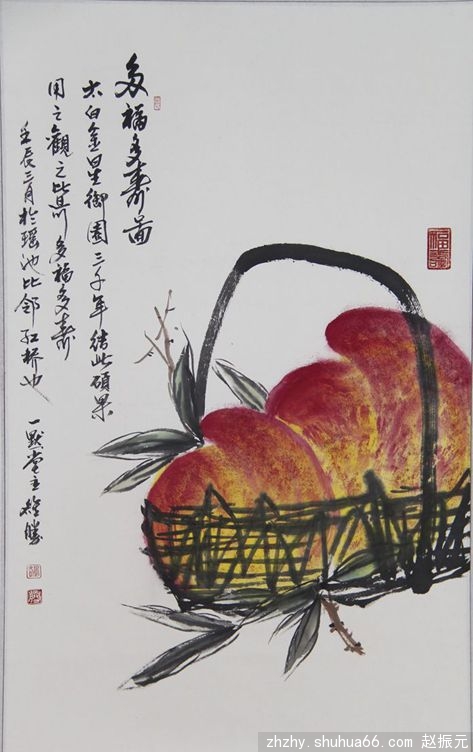 多福多寿圖
太白金星御園三千年结此碩果
用之觀之多福多寿
壬辰三月於瑶池比邻红桥也
一默堂王雄勝
zhzhy.shuhua66.com 赵振元